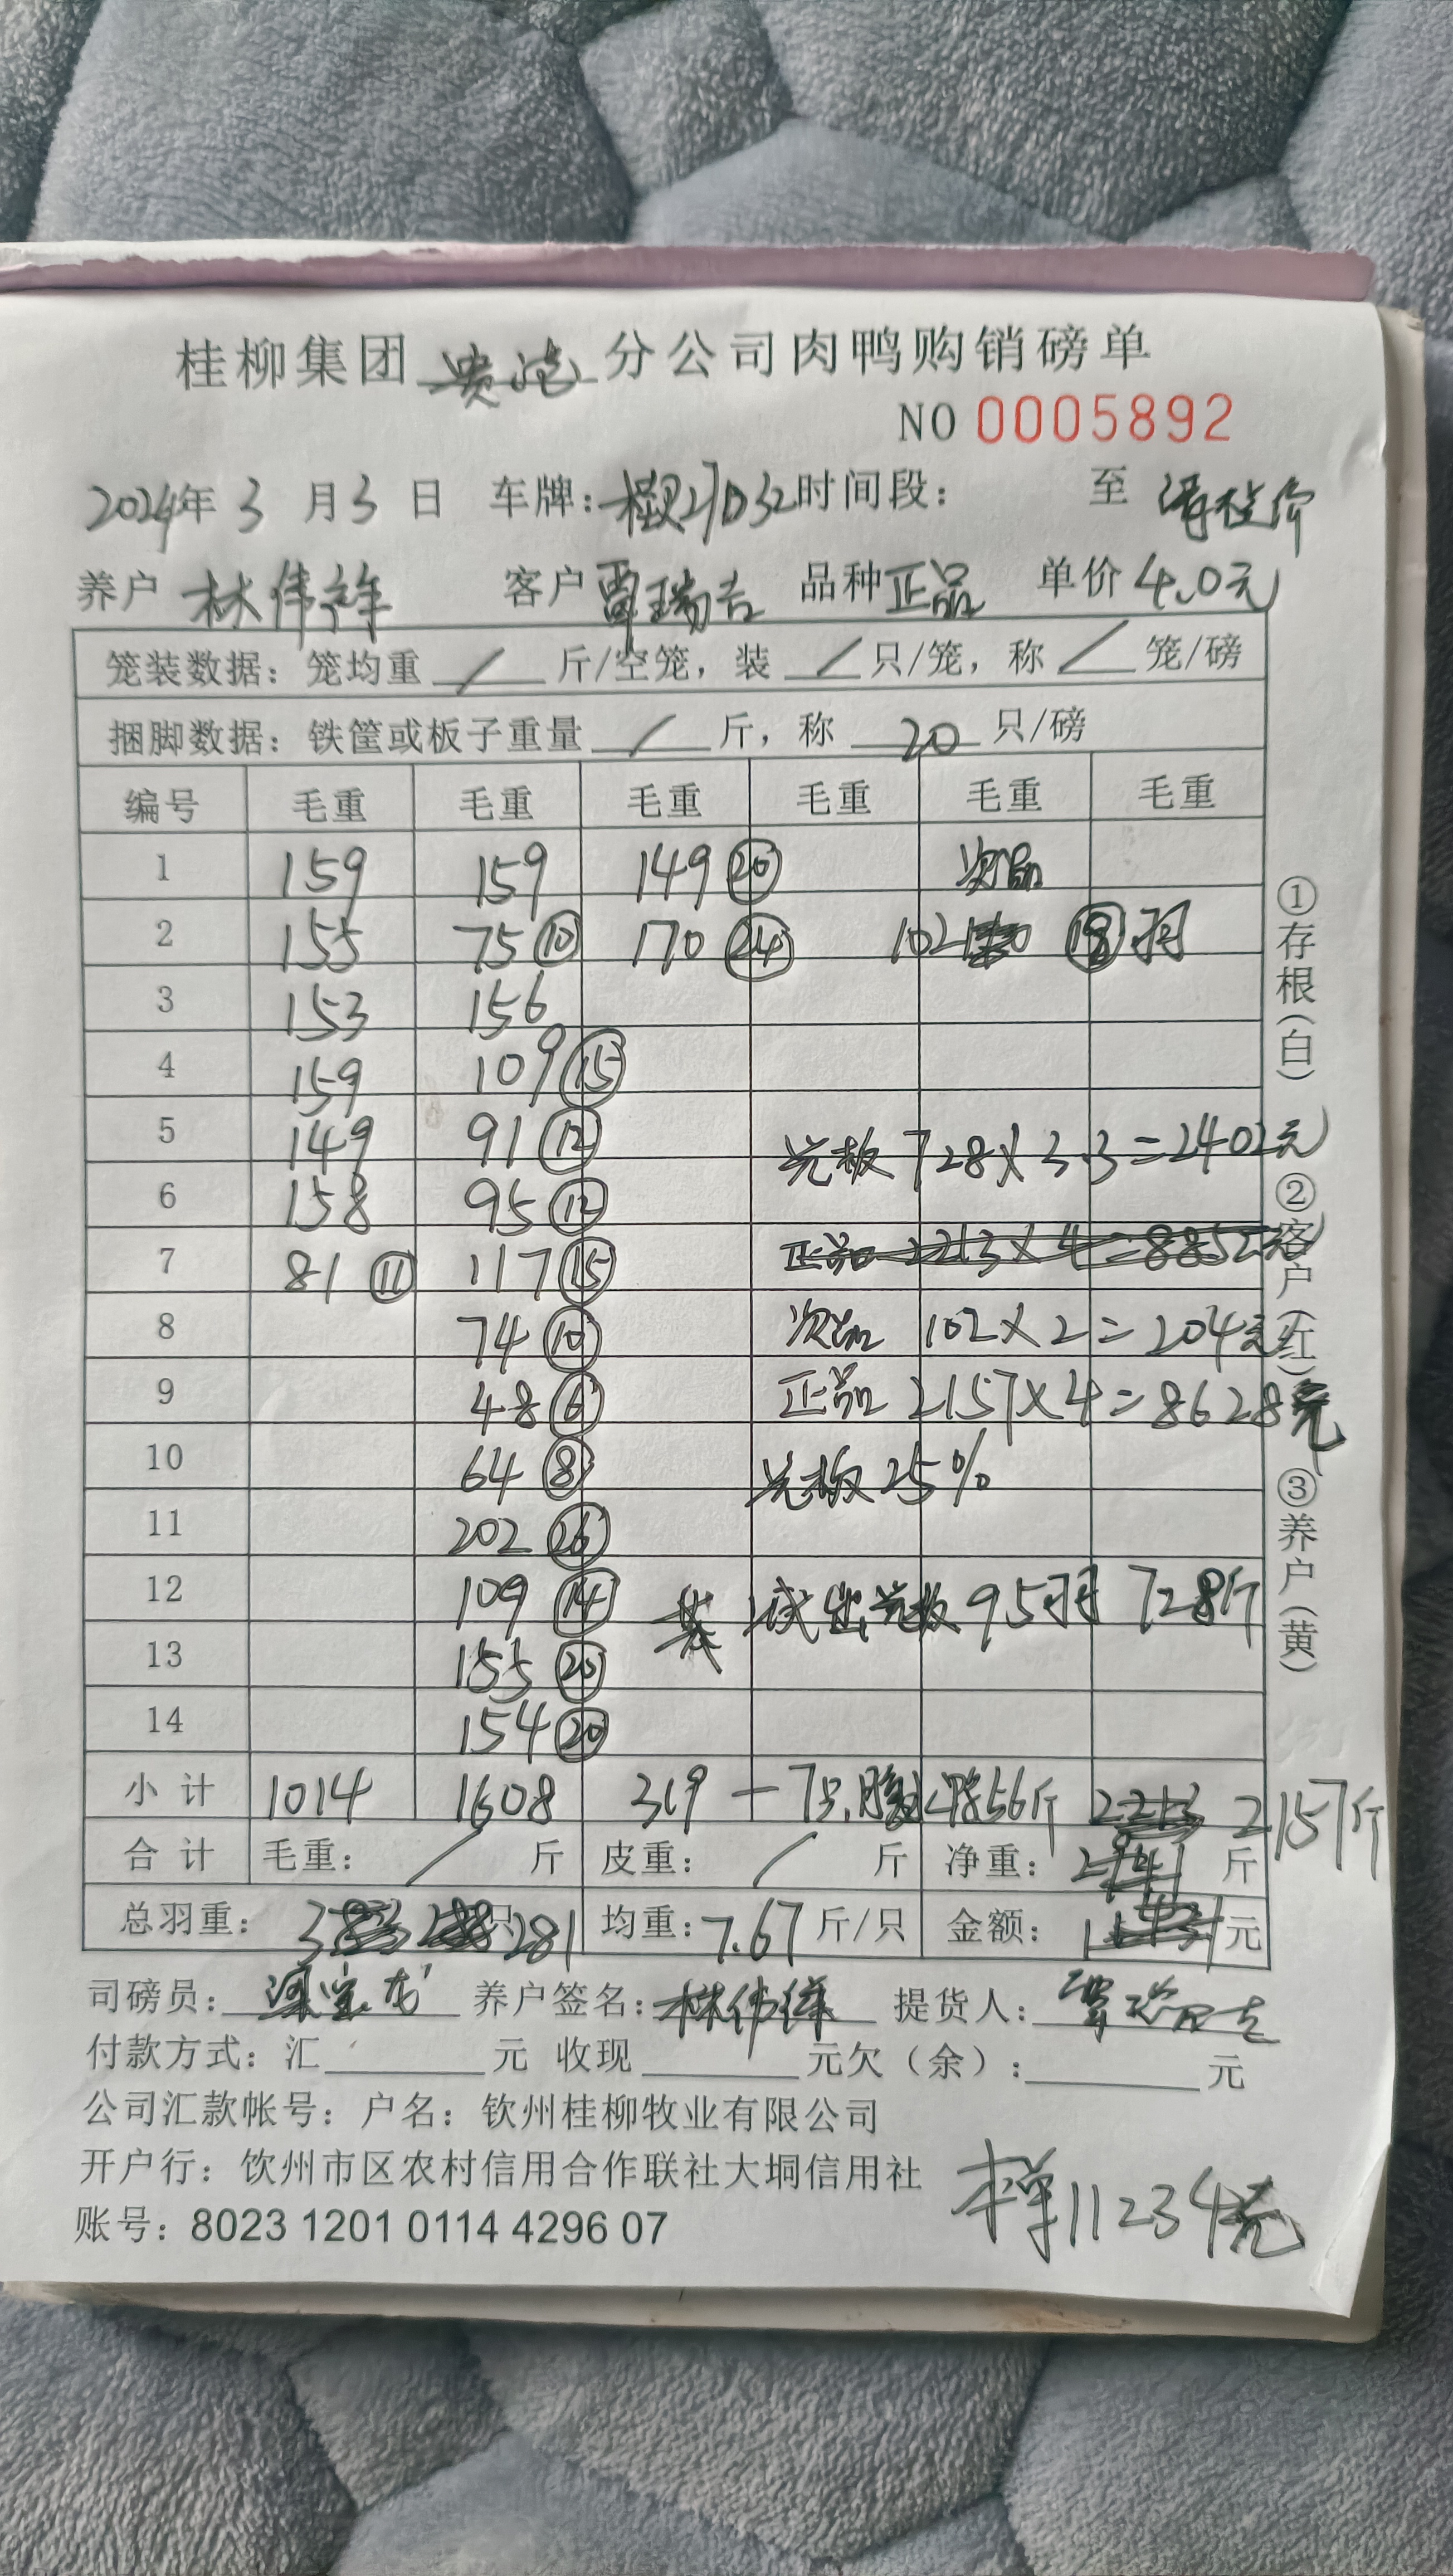 桂柳集团贵港分公司肉鸭购销磅单
NO 0005892
2024年 3 月 3 日 车牌: 时间段: 至
养户 林伟祥 客户 覃瑞吉 品种 正品 单价 4.0元
笼装数据: 笼均重 / 斤/空笼, 装 / 只/笼, 称 / 笼/磅
捆脚数据: 铁筐或板子重量 / 斤, 称 20 只/磅
编号 毛重 毛重 毛重 毛重 毛重 毛重
1 159 159 149 ⑳ 次品
2 155 75 ⑩ 170 ㉔ 102 ⑱ 羽
3 153 156
4 159 109 ⑮
5 149 91 ⑫ 光板 728×3.3=2402元
6 158 95 ⑫
7 81 ⑪ 117 ⑮ 正品 2213×4=8852元
8 74 ⑩ 次品 102×2=204元
9 48 ⑥ 正品 2157×4=8628元
10 64 ⑧ 光板25%
11 202 ㉖
12 109 ⑭ 光板 95羽 728斤
13 155 ⑳
14 154 ⑳
小计 1014 1608 319 56斤 2213 2157斤
合计 毛重: / 斤 皮重: / 斤 净重: 2941 斤
总羽重: 383 281 只 均重: 7.67 斤/只 金额: 元
司磅员: 养户签名: 林伟祥 提货人: 覃瑞吉
付款方式: 汇 元 收现 元欠(余): 元
公司汇款帐号: 户名: 钦州桂柳牧业有限公司
开户行: 饮州市区农村信用合作联社大垌信用社
账号: 8023 1201 0114 4296 07
本单11234元
①存根(白) ②客户(红) ③养户(黄)